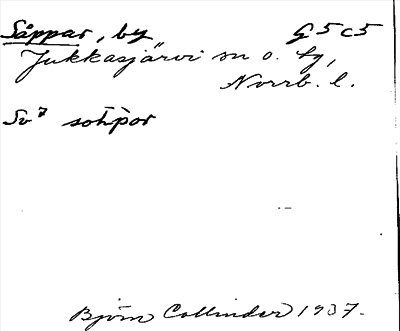 Såppar, by G 5 c 5
Jukkasjärvi sn o. tg,
Norrb. l.
Sv⁷ sòp̀por
Björn Collinder 1937.